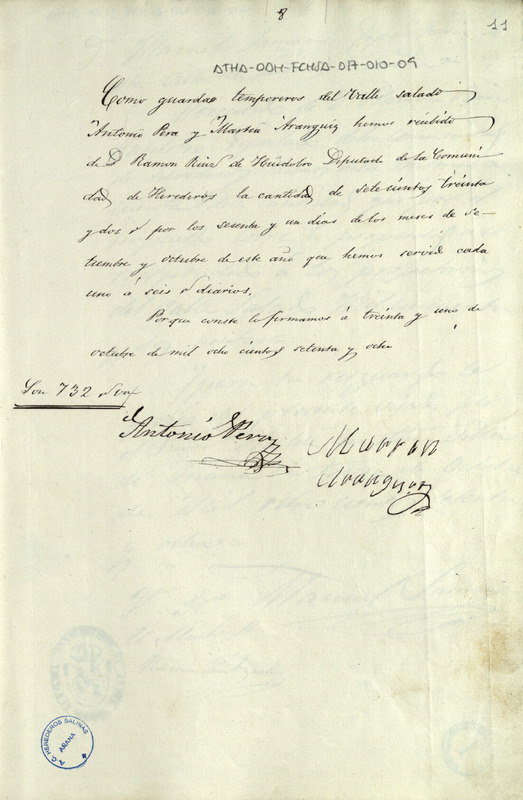 8
11
ATHA-DAH-FCHSA-017-010-09
Como guardas temporeros del Valle salado
Antonio Pera y Martin Aranguiz hemos recibido
de D Ramon Ruiz de Huidobro Diputado de la Comuni
dad de Herederos la cantidad de setecientos treinta
y dos r por los sesenta y un dias de los meses de Se-
tiembre y octubre de este año que hemos servido cada
uno á seis r diarios.
Porque conste lo firmamos á treinta y uno de
octubre de mil ocho cientos setenta y ocho
Son 732
Antonio Pera
Martin
Aranguiz
A.C. HEREDEROS SALINAS
AÑANA